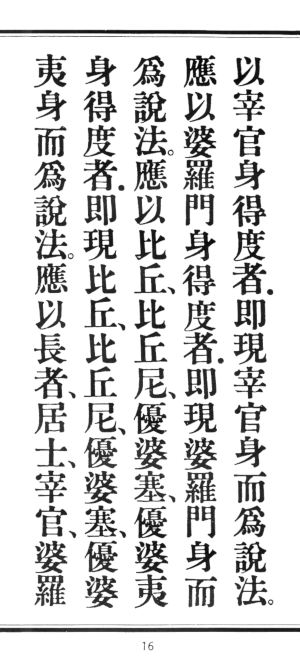 以宰官身得度者．即現宰官身而爲說法。
應以婆羅門身得度者．即現婆羅門身而
爲說法。應以比丘、比丘尼、優婆塞、優婆夷
身得度者．即現比丘、比丘尼、優婆塞、優婆
夷身而爲說法。應以長者、居士、宰官、婆羅
16